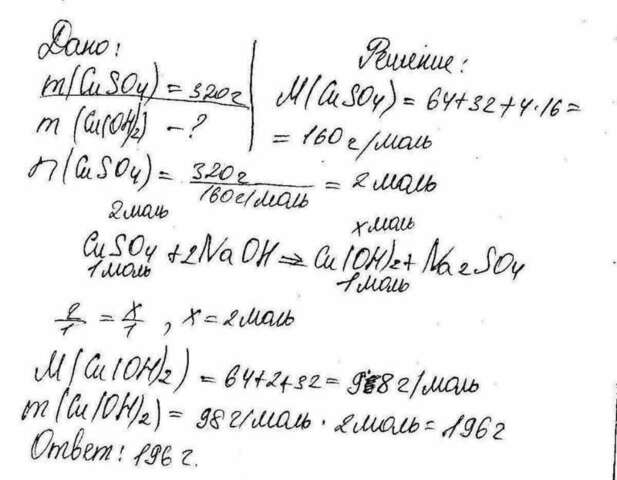 Дано:
m(CuSO4) = 320г
m (Cu(OH)2) - ?
Решение:
M(CuSO4) = 64+32+4·16=
= 160г/моль
n(CuSO4) = 320г/160г/моль = 2 моль
2моль x моль
CuSO4 + 2NaOH => Cu(OH)2 + Na2SO4
1моль 1моль
2/1 = x/1 , x = 2моль
M(Cu(OH)2) = 64+2+32 = 98г/моль
m(Cu(OH)2) = 98г/моль · 2моль = 196г
Ответ: 196 г.